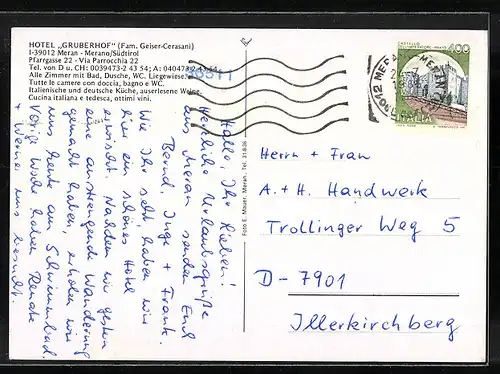 HOTEL „GRUBERHOF" (Fam. Geiser-Cerasani)
I-39012 Meran - Merano/Südtirol
Pfarrgasse 22 - Via Parrocchia 22
Tel. von D u. CH: 0039473-2 43 54; A: 040473-2 43 54
Alle Zimmer mit Bad, Dusche, WC. Liegewiese.
Tutte le camere con doccia, bagno e WC.
Italienische und deutsche Küche, auserlesene Weine.
Cucina italiana e tedesca, ottimi vini.
Hallo, Ihr Lieben!
Herzliche Urlaubsgrüße
aus Meran senden Euch
Bernd, Inge + Frank.
Wie Ihr seht, haben wir
hier ein schönes Hotel
erwischt. Nachdem wir gestern
eine anstrengende Wanderung
gemacht haben, erholen wir
uns heute am Schwimmbad.
Vorige Woche haben Renate
+ Werner uns besucht.
Foto E. Mauer, Meran, Tel.
400
ITALIA
Herrn + Frau
A. + H. Handwerk
Trollinger Weg 5
D-7901
Illerkirchberg